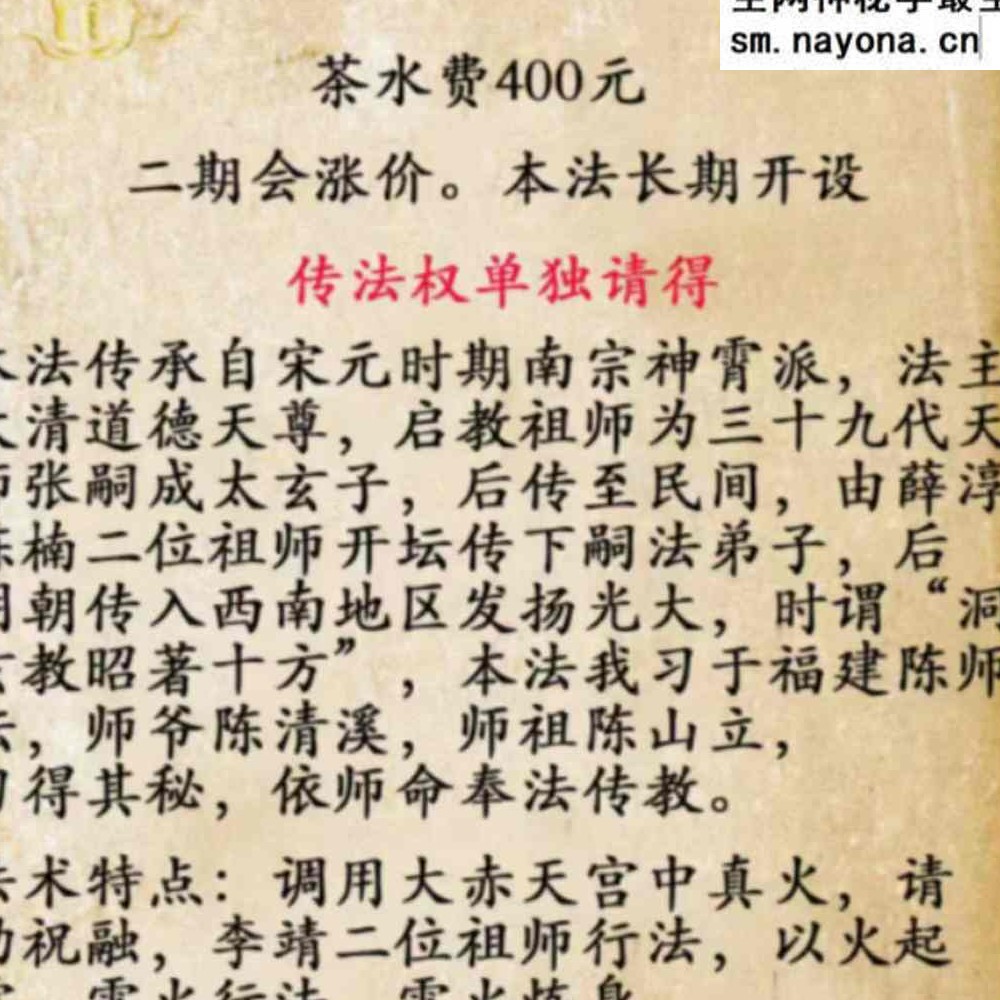 sm.nayona.cn
茶水费400元
二期会涨价。本法长期开设
传法权单独请得
法传承自宋元时期南宗神霄派，法主
清道德天尊，启教祖师为三十九代天
张嗣成太玄子，后传至民间，由薛淳
楠二位祖师开坛传下嗣法弟子，后
朝传入西南地区发扬光大，时谓“洞
教昭著十方”，本法我习于福建陈师
，师爷陈清溪，师祖陈山立，
得其秘，依师命奉法传教。
术特点：调用大赤天宫中真火，请
祝融，李靖二位祖师行法，以火起